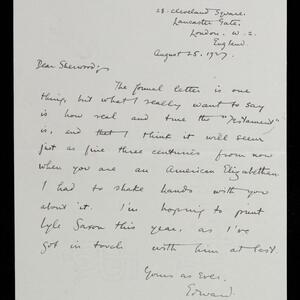 28. Cleveland Square.
Lancaster Gate.
London. W. 2.
England.
August 25. 1927.
Dear Sherwood,
The formal letter is one
thing, but what I really want to say
is how real and true the "Testament"
is, and that I think it will seem
just as fine three centuries from now
when you are an American Elizabethan.
I had to shake hands with you
about it. I'm hoping to print
Lyle Saxon this year, as I've
got in touch with him at last.
Yours as Ever.
Edward.